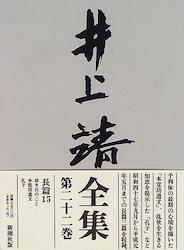 井上靖
全集
第二十二巻
長篇15
幼き日のこと
本覚坊遺文
孔子
新潮社版
千利休の最期の心境を描く
「本覚坊遺文」、乱世を生きる
知恵を提示した「孔子」など
昭和四十七年九月から平成元
年五月までの長篇三篇を収録